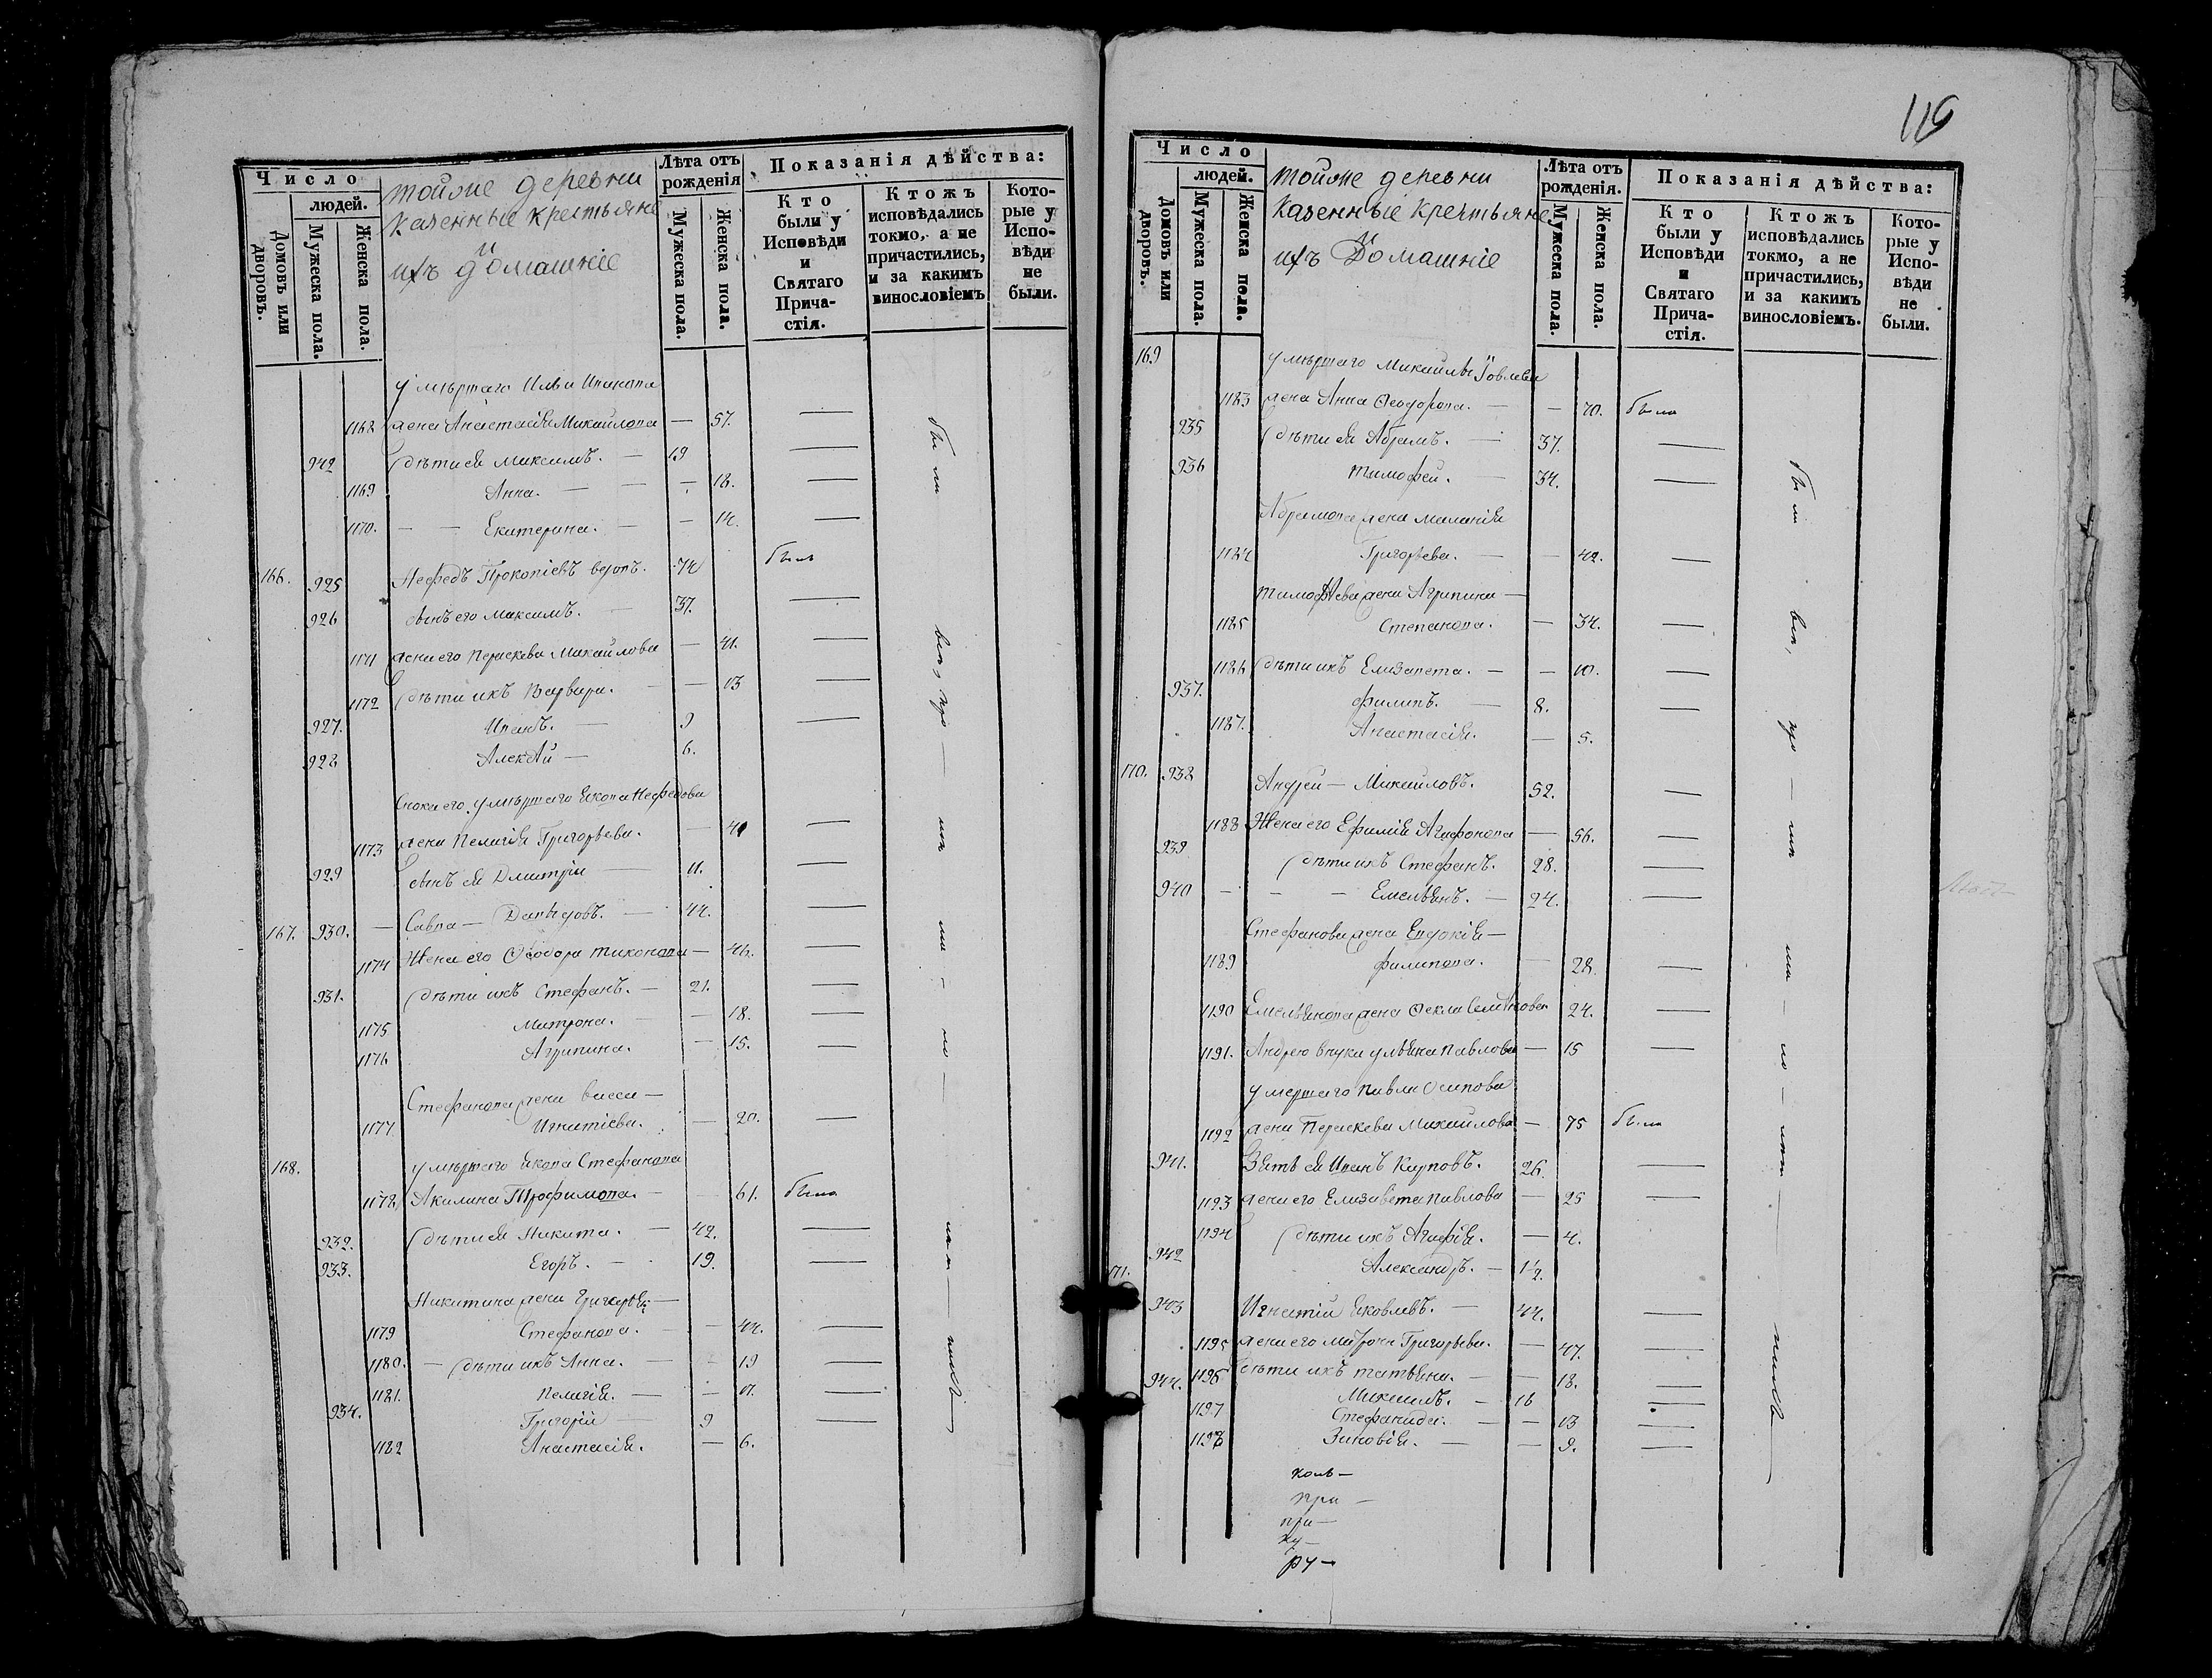 Число
людей.
Домовъ или дворовъ.
Мужеска пола.
Женска пола.
тойже деревни
Казенные крестьяне
и
ихъ домашніе
Лѣта отъ рожденія
Мужеска пола.
Женска пола.
Показанія дѣйства:
Кто были у Исповѣди и Святаго Прича-стія.
Ктожъ исповѣдались токмо, а не причастились, и за какимъ винословіемъ
Кото-рые у Испо-вѣди не были.
умершаго Ильи Иванова
1168 жена Анастасія Михайлова — 57. —
942 дѣти ея Максимъ. — 19 —
1169 Анна. — — — 18. —
1170. — — Екатерина. — — 14. —
166. 925 Нефедъ Прокопіевъ вдовъ. 74 былъ
926 сынъ его Максимъ. — 37. —
1171 жена его Параскева Михайлова — 41. —
1172 дѣти ихъ Варвара. — — 13 —
927. Иванъ. — 9 —
928 Алексѣй — 6.
Сноха его, умершаго Якова Нефедова
1173 жена Пелагія Григорьева. — 40 —
929 сынъ ея Дмитрій — 11. —
167. 930. — Савва — Давыдовъ. — 44. —
1174 Жена его Ѳеодора Тихонова — 46. —
931. дѣти ихъ Стефанъ. — 21. —
1175 Матрона. — — 18. —
1176 Агрипина. — 15. —
Стефанова жена Васса —
1177 Игнатіева. — 20. —
168. умершаго Якова Стефанова
1178 Акилина Трофимова. — — 61. была
932. дѣти ея Никита. — 42. —
933. Егоръ. — 19. —
Никитина жена —
1179 Стефанова. — — 44. —
1180. — дѣти ихъ Анна. — — 19 —
1181. Пелагія. — — 17. —
934. Григорій — 9 —
1182 Анастасія. — 6.
были
119
Число
людей.
Домовъ или дворовъ.
Мужеска пола.
Женска пола.
тойже деревни
Казенные крестьяне
и
ихъ Домашніе
Лѣта отъ рожденія.
Мужеска пола.
Женска пола.
Показанія дѣйства:
Кто были у Исповѣди и Святаго Прича-стія.
Ктожъ исповѣдались токмо, а не причастились, и за какимъ винословіемъ.
Кото-рые у Испо-вѣди не были.
169 умершаго Михайлы Іовлева
1183 жена Анна Ѳеодорова. — — 70. была
935 дѣти ея Абрамъ. — 37. —
936 Тимофей. — 34. —
Абрамова жена Маланія
1184 Григорьева. — — 42. —
Тимофѣева жена Агрипина —
1185 Степанова. — 34. —
1186 дѣти ихъ Елизавета. — — 10. —
937. Филипъ. — 8. —
1187. Анастасія. — 5.
170. 938 Андрей — Михайловъ. 52. —
1188 Жена его Ефимія Агафонова — 56. —
939 дѣти ихъ Стефанъ. 28. —
940 — — — Емельянъ. — 24. —
Стефанова жена Евдокія —
1189 Филипова. — 28. —
1190 Емельянова жена Ѳекла 24. —
1191. Андрею внука Ульяна Павлова — 15 —
умершаго Павла Осипова
1192 жена Параскева Михайлова — 75 была
941. Зять ея Иванъ Карповъ. 26. —
1193 жена его Елизавета Павлова — 25 —
1194 дѣти ихъ Агафія. — 4.
942 Александръ. — 1½.
171. 943 Игнатій Яковлевъ. — 44. —
1195 жена его Матрона Григорьева. — 47. —
1196 дѣти ихъ Татьяна. — — 18. —
944. Михаилъ. — 16 —
1197 Стефанида. — — 13 —
1198 Зиновія. — — 9. —
были
коль —
при —
при —
ху —
ру —